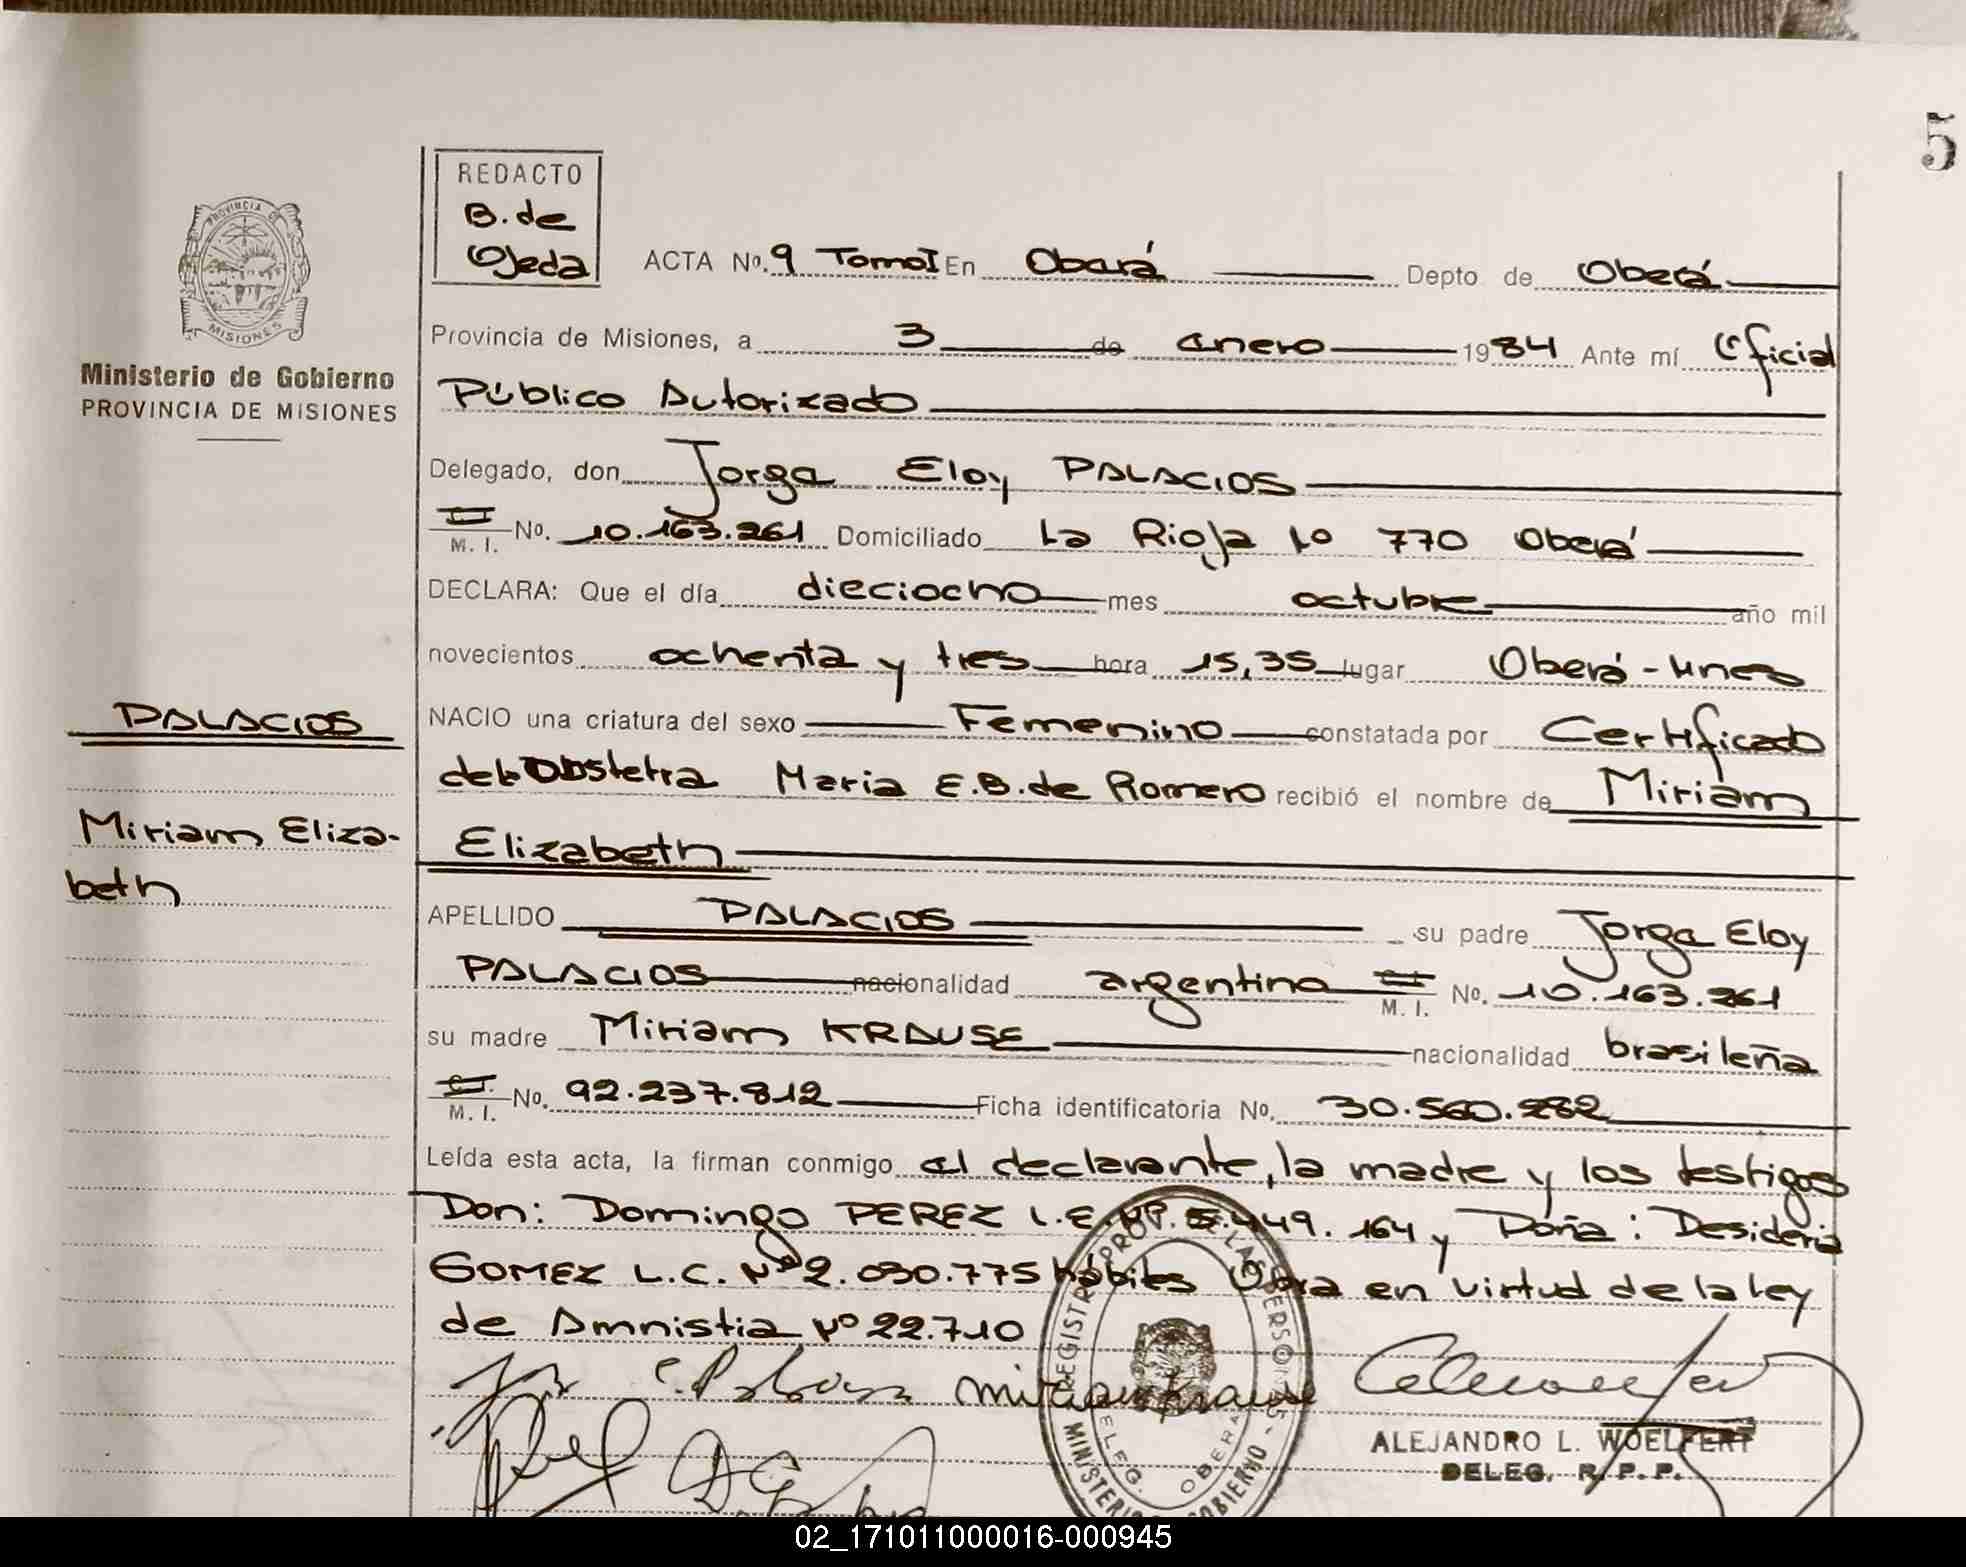 5
REDACTO
B. de
Ojeda
ACTA Nº. 9 Tomo I En Oberá Depto de Oberá
PROVINCIA DE
MISIONES
Ministerio de Gobierno
PROVINCIA DE MISIONES
Provincia de Misiones, a 3 de enero 1984 Ante mí Oficial
Público Autorizado
Delegado, don Jorge Eloy PALACIOS
M. I. No. 10.163.261 Domiciliado La Rioja Nº 770 Oberá
DECLARA: Que el día dieciocho mes octubre año mil
novecientos ochenta y tres hora 15,35 lugar Oberá - Mnes
PALACIOS
Miriam Eliza-
beth
NACIO una criatura del sexo Femenino constatada por Certificado
de la Obstetra Maria E.B. de Romero recibió el nombre de Miriam
Elizabeth
APELLIDO PALACIOS su padre Jorge Eloy
PALACIOS nacionalidad argentina M. I. No. 10.163.261
su madre Miriam KRAUSE nacionalidad brasileña
M. I. No. 92.237.812 Ficha identificatoria No. 30.560.282
Leída esta acta, la firman conmigo el declarante, la madre y los testigos
Don: Domingo PEREZ L.E. Nº. 5.449.164 y Doña: Desideria
GOMEZ L.C. Nº 2.030.775 hábiles en virtud de la ley
de Amnistia Nº 22.710
miriam krause
REGISTRO PROV. DE LAS PERSONAS - MINISTERIO GOBIERNO
DELEG. OBERA
ALEJANDRO L. WOELFERT
DELEG. R. P. P.
02_171011000016-000945